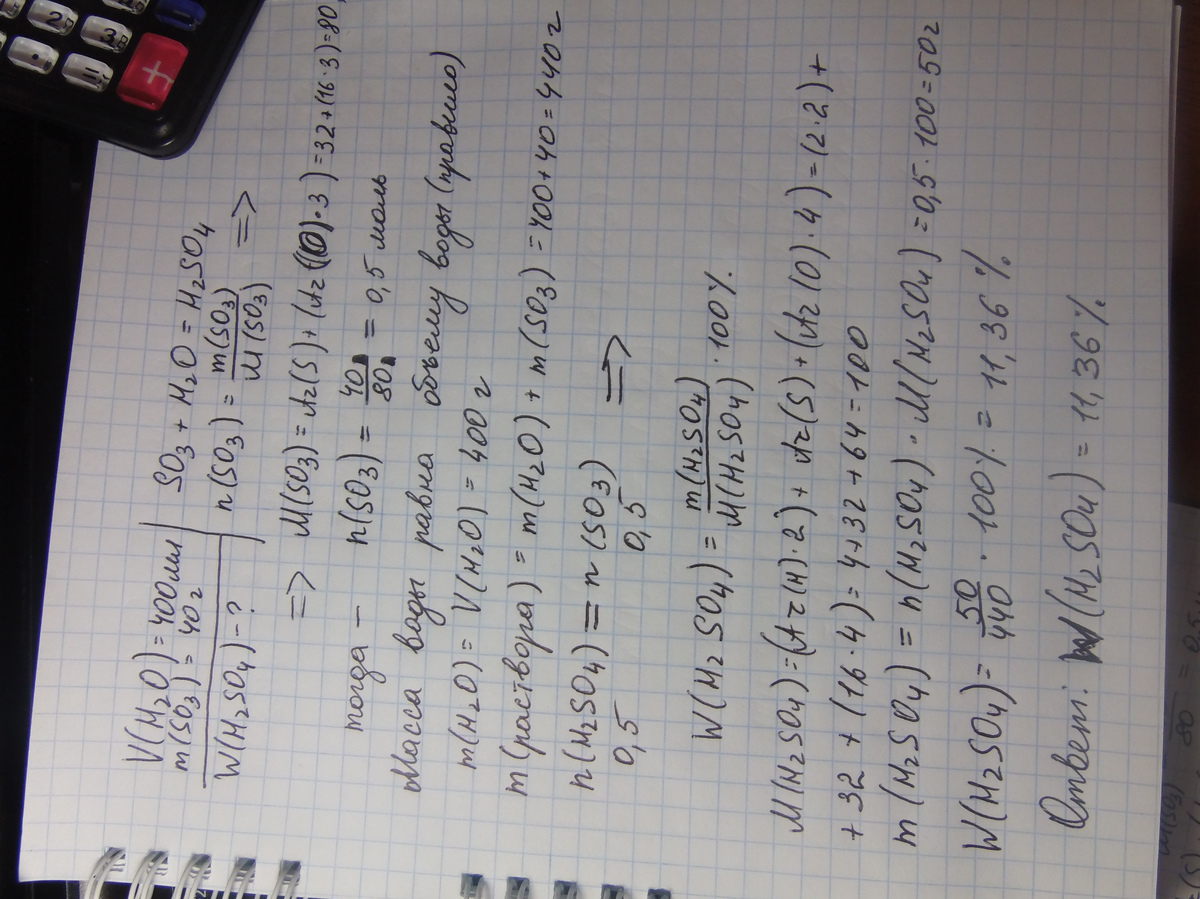 V(H₂O) = 400мл
m(SO₃) = 40г
W(H₂SO₄) - ?
SO₃ + H₂O = H₂SO₄
n(SO₃) = m(SO₃)/M(SO₃) =>
=> M(SO₃) = Ar(S) + (Ar(O)·3) = 32+(16·3)=80
тогда — n(SO₃) = 40/80 = 0,5 моль
Масса воды равна объему воды (правило)
m(H₂O) = V(H₂O) = 400 г
m(раствора) = m(H₂O) + m(SO₃) = 400+40 = 440 г
n(H₂SO₄) = n(SO₃) =>
0,5 0,5
W(H₂SO₄) = m(H₂SO₄)/M(H₂SO₄) · 100%.
M(H₂SO₄) = (Ar(H)·2) + Ar(S) + (Ar(O)·4) = (2·2) +
+ 32 + (16·4) = 4+32+64 = 100
m(H₂SO₄) = n(H₂SO₄) · M(H₂SO₄) = 0,5·100 = 50г
W(H₂SO₄) = 50/440 · 100% = 11,36 %
Ответ: W(H₂SO₄) = 11,36 %.
2
3
·
=
+